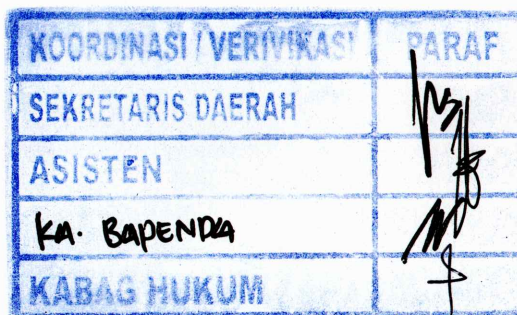 KOORDINASI / VERIVIKASI PARAF
SEKRETARIS DAERAH
ASISTEN
KA. BAPENDA
KABAG HUKUM